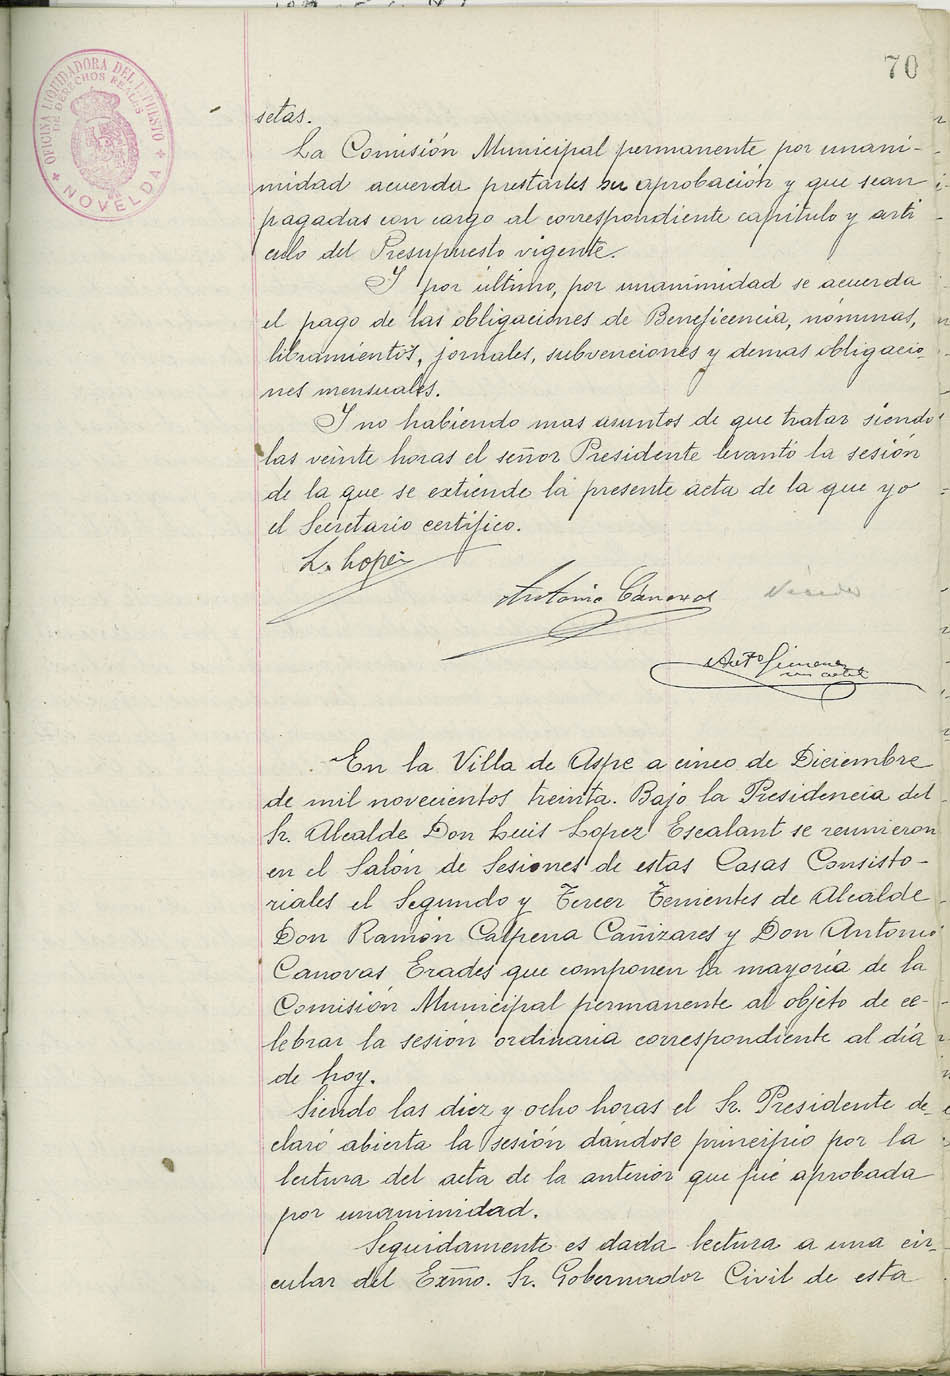 70
OFICINA LIQUIDADORA DEL IMPUESTO
DE DERECHOS REALES
NOVELDA
setas.
La Comisión Municipal permanente por unani-
midad acuerda prestarles su aprobación y que sean
pagadas con cargo al correspondiente capitulo y arti
culo del Presupuesto vigente.
Y por último, por unanimidad se acuerda
el pago de las obligaciones de Beneficencia, nóminas,
libramientos, jornales, subvenciones y demas obligacio-
nes mensuales.
Y no habiendo mas asuntos de que tratar siendo
las veinte horas el señor Presidente levantó la sesión
de la que se extiende la presente acta de la que yo
el Secretario certifico.
L. Lopez
Antonio Cánovas
Antº Gimenez
En la Villa de Aspe a cinco de Diciembre
de mil novecientos treinta. Bajo la Presidencia del
Sr. Alcalde Don Luis Lopez Escalant se reunieron
en el Salón de Sesiones de estas Casas Consisto-
riales el Segundo y Tercer Tenientes de Alcalde
Don Ramón Calpena Cañizares y Don Antonio
Canovas Erades que componen la mayoría de la
Comisión Municipal permanente al objeto de ce-
lebrar la sesión ordinaria correspondiente al día
de hoy.
Siendo las diez y ocho horas el Sr. Presidente de-
claró abierta la sesión dándose principio por la
lectura del acta de la anterior que fué aprobada
por unanimidad.
Seguidamente es dada lectura a una cir-
cular del Exmo. Sr. Gobernador Civil de esta